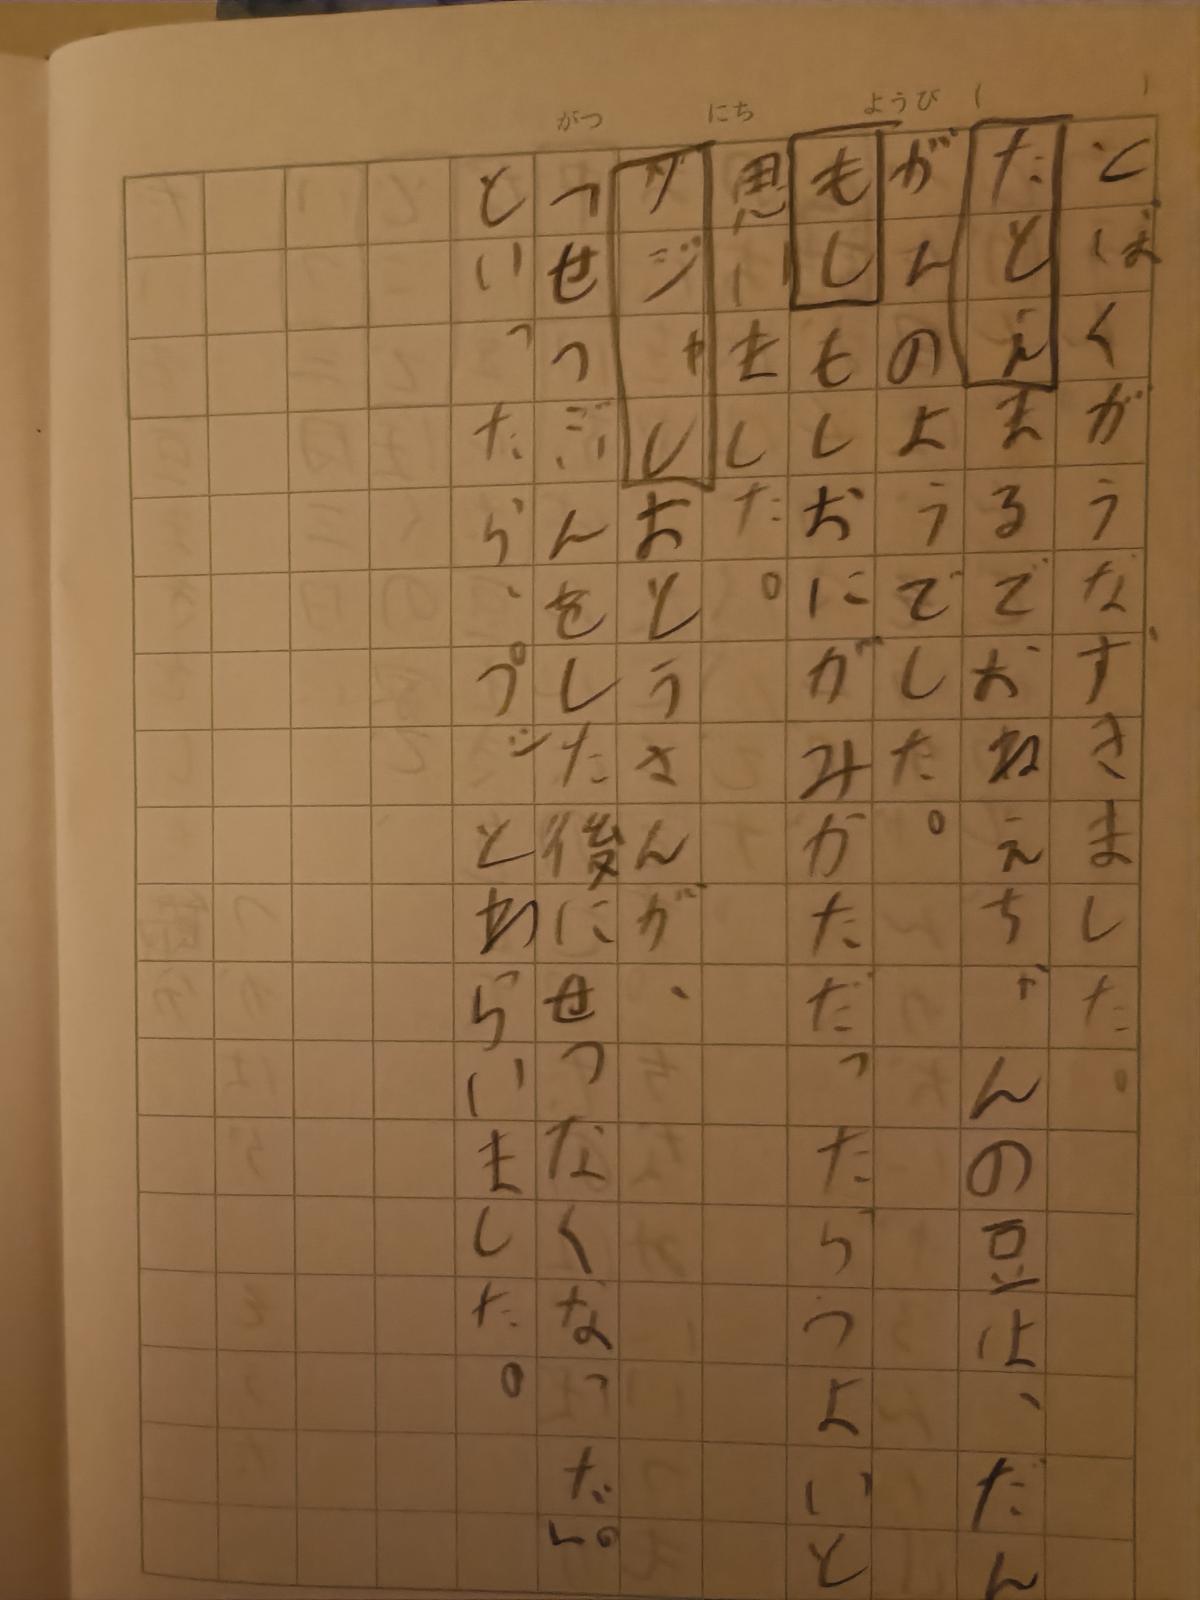 がつ にち ようび ( )
とぼくがうなずきました。
たとえまるでおねえちゃんの豆は、だん
がんのようでした。
もしもしおにがみかただったらつよいと
思いました。
ダジャレおとうさんが、
「せつぶんをした後にせつなくなった。」
といったら、プッとわらいました。